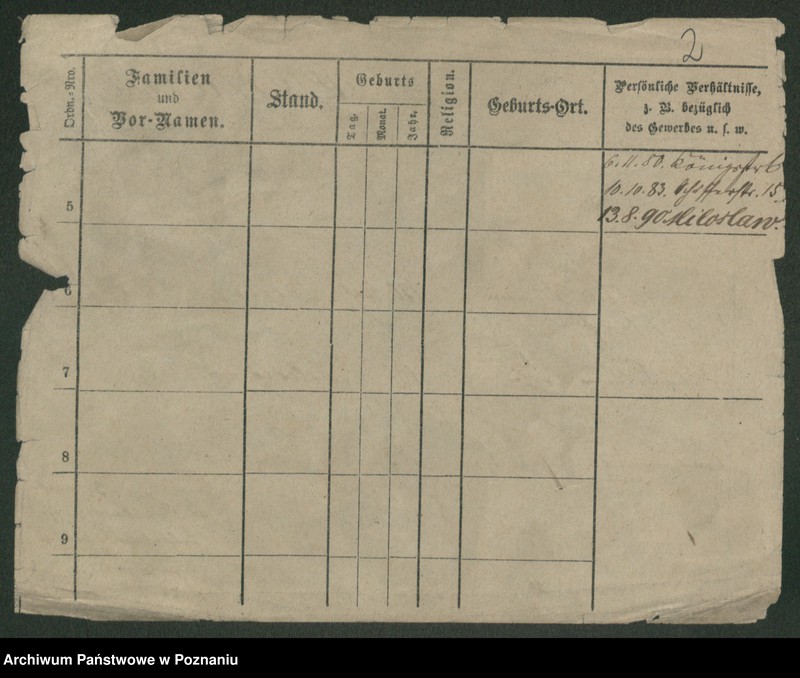 2
Ordn.-Nro.
Familien
und
Vor-Namen.
Stand.
Geburts
Tag.
Monat.
Jahr.
Religion.
Geburts-Ort.
Persönliche Verhältnisse,
z. B. bezüglich
des Gewerbes u. s. w.
6.11.80. Königsstr 6
10.10.83. 15
5
13.8.90 Miloslaw.
6
7
8
9
Archiwum Państwowe w Poznaniu